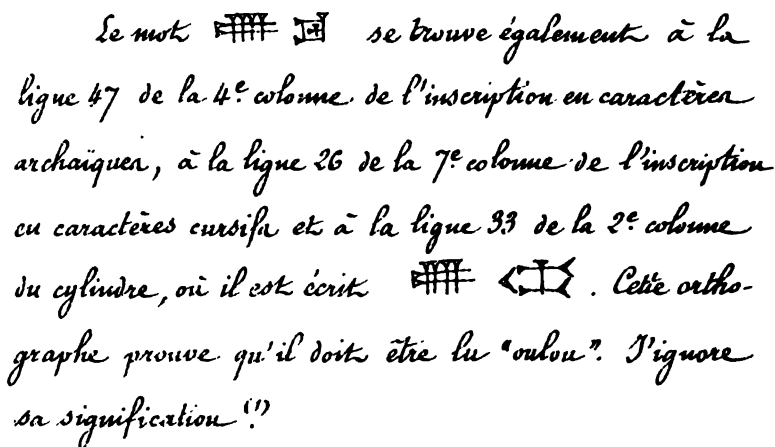 Le mot 𒌑 se trouve également à la
ligne 47 de la 4e colonne de l'inscription en caractères
archaïques, à la ligne 26 de la 7e colonne de l'inscription
en caractères cursifs et à la ligne 33 de la 2e colonne
du cylindre, où il est écrit 𒌑 . Cette ortho-
graphe prouve qu'il doit être lu "oulou". J'ignore
sa signification (1)